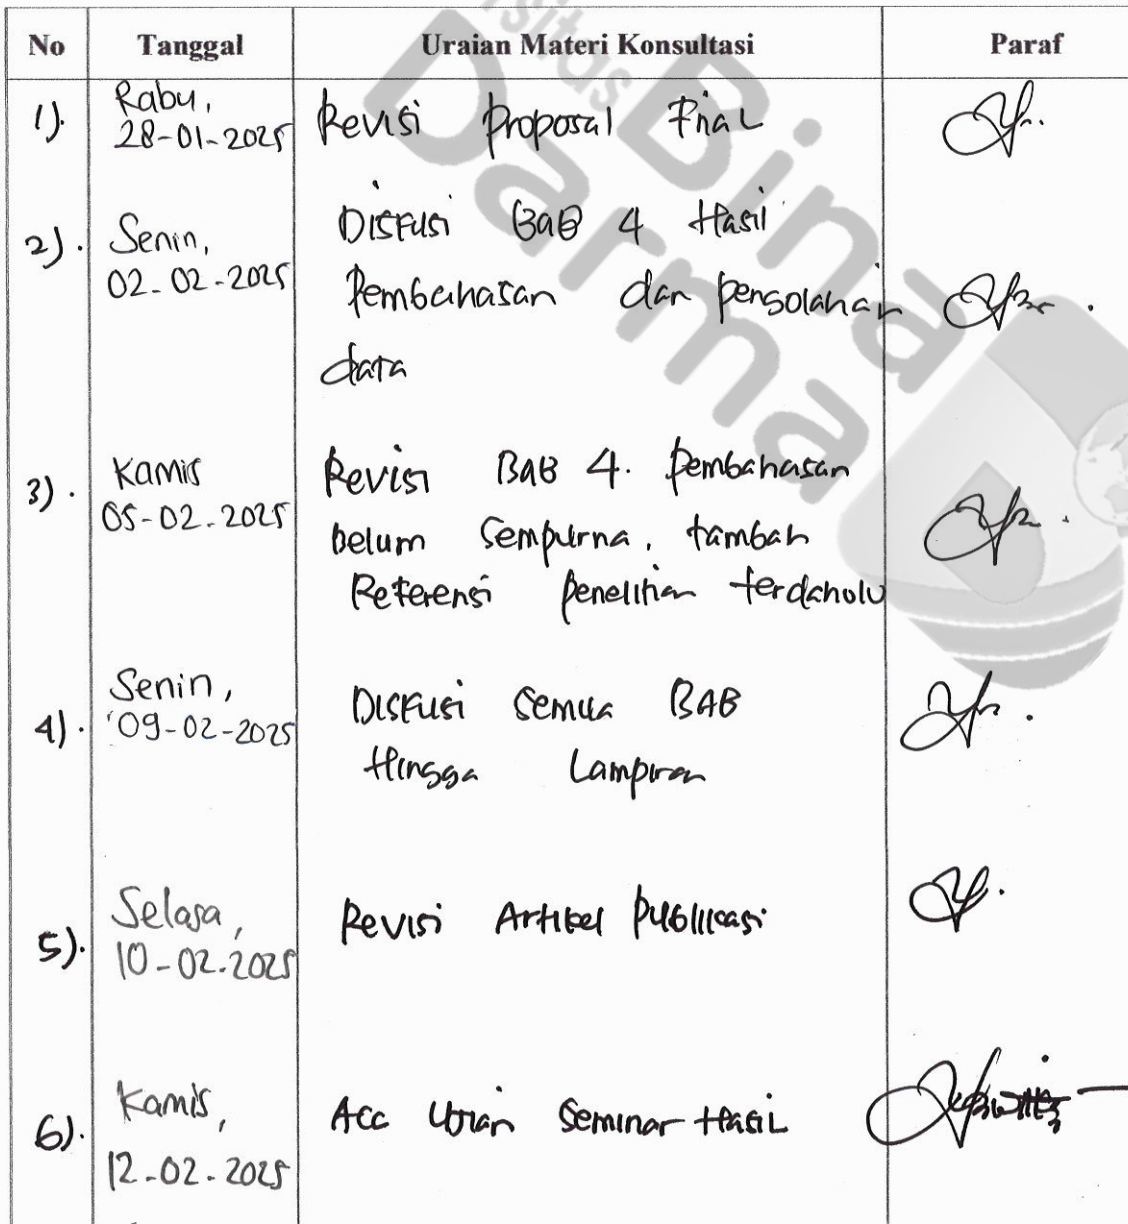 No Tanggal Uraian Materi Konsultasi Paraf
1). Rabu,
28-01-2025 Revisi Proposal Final
2). Senin,
02-02-2025 Diskusi BaB 4 Hasil
Pembahasan dan pengolahan
data
3). Kamis
05-02-2025 Revisi BaB 4. Pembahasan
belum sempurna, tambah
Referensi penelitian terdahulu
4). Senin,
09-02-2025 Diskusi Semua BAB
Hingga Lampiran
5). Selasa,
10-02-2025 Revisi Artikel Publikasi
6). Kamis,
12-02-2025 Acc Ujian Seminar Hasil
sitas
Bina
Darma